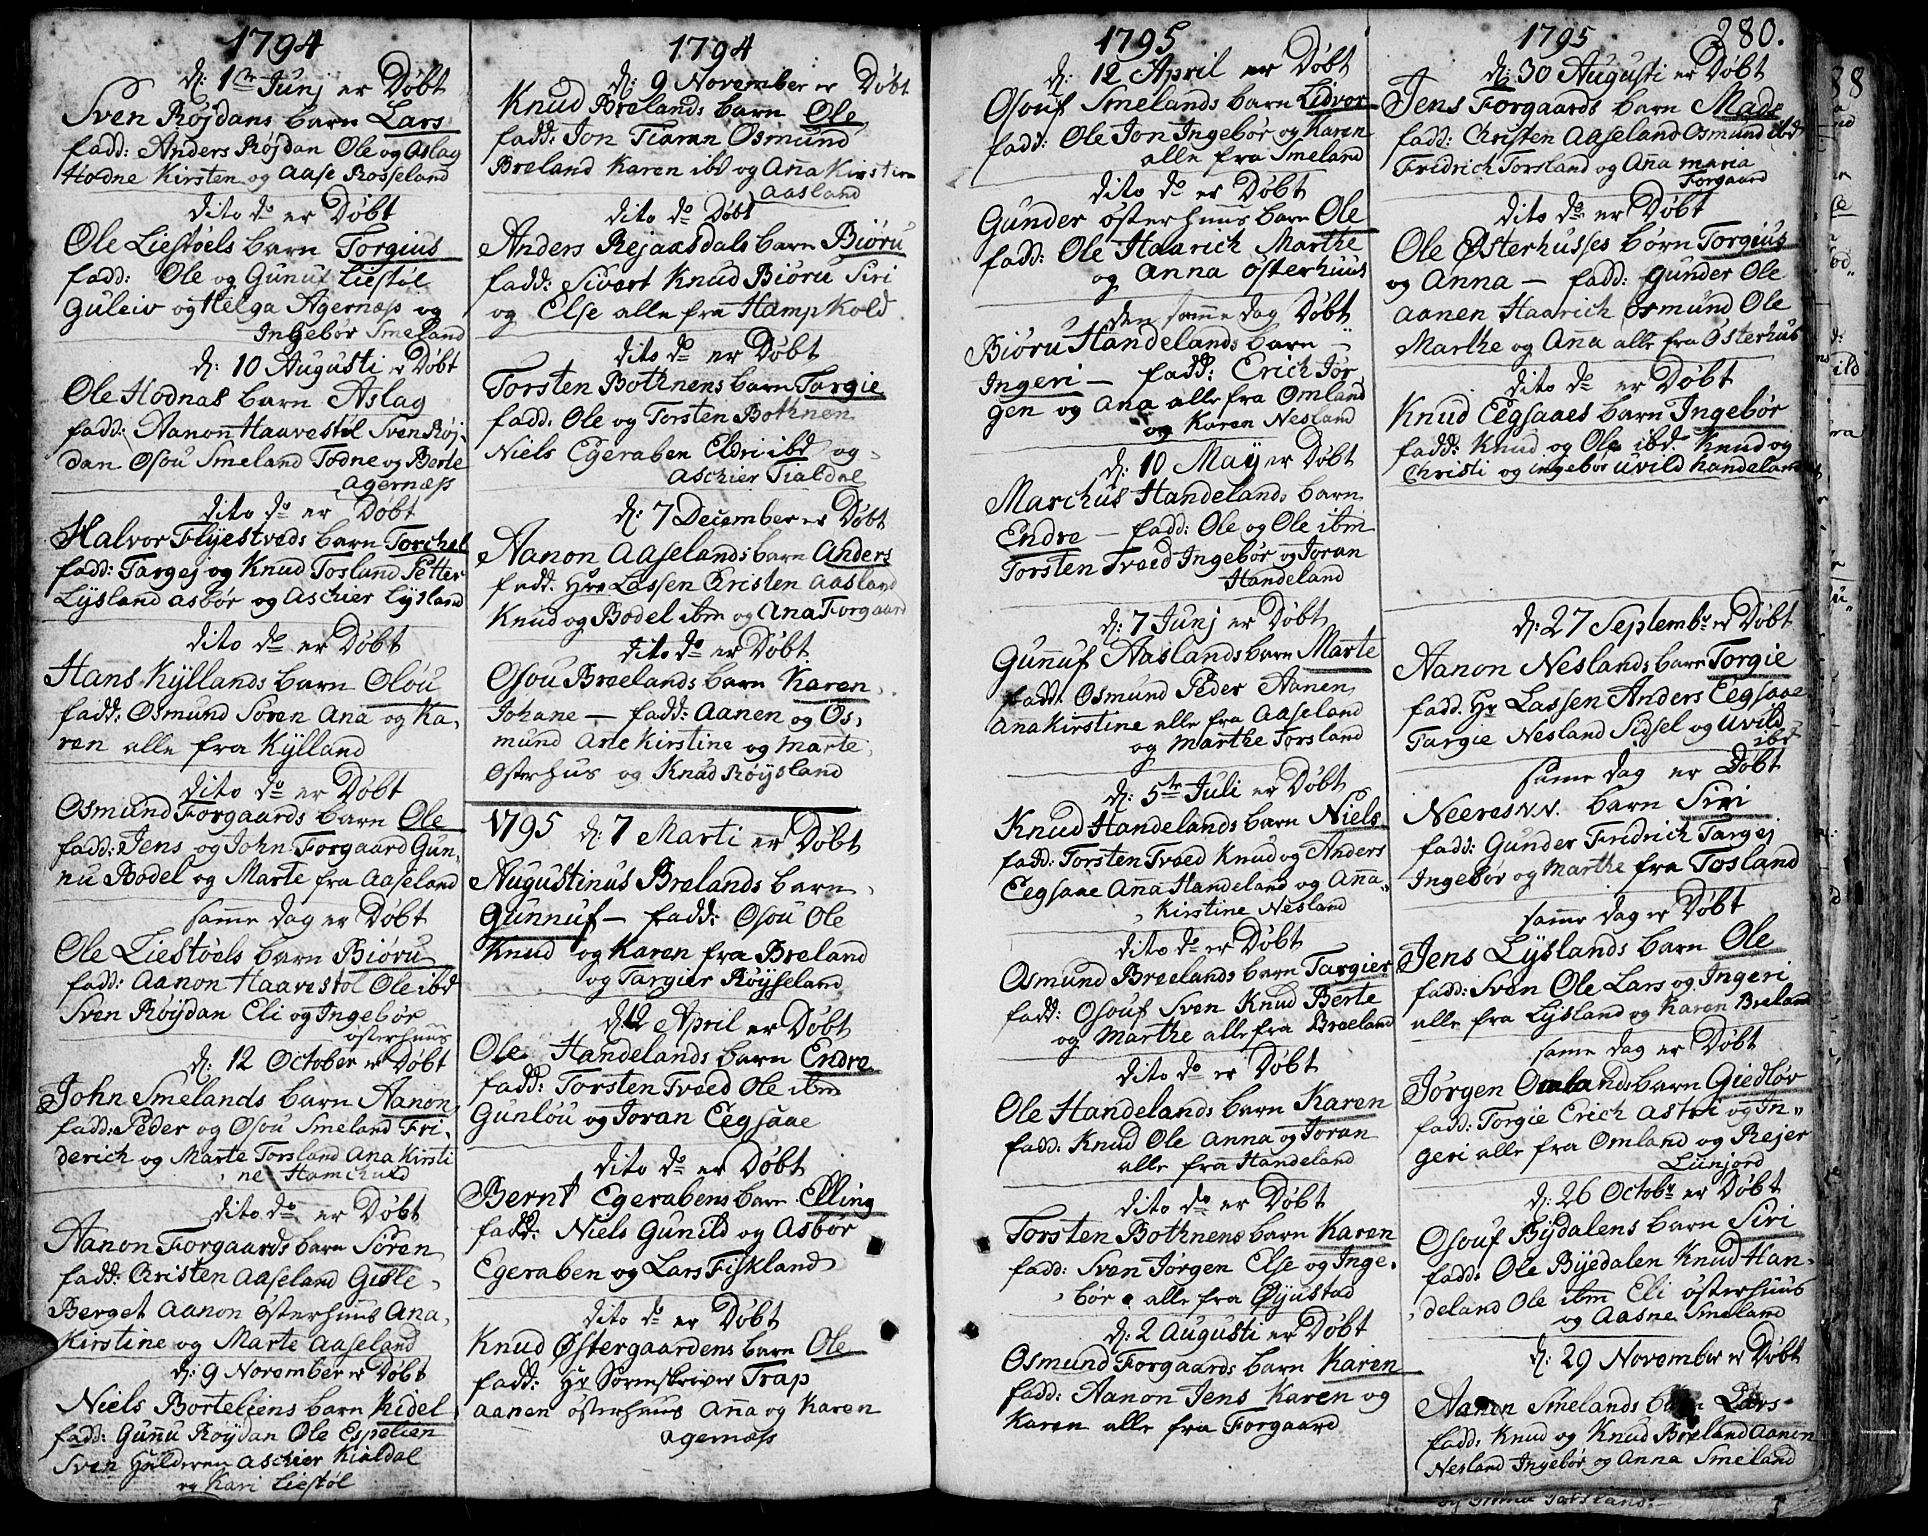 1794
d: 1te Junj er Døbt
Sven Røjdans barn Lars
fadd: Anders Røjdan Ole og Aslag
Hodne Kirsten og Aase Rosseland
dito do er Døbt
Ole Liestøels barn Torgius
fadd: Ole og Gunuf Liestøl
Guleiv og Helga Agernæss og
Ingebør Smeland
d: 10 Augusti er Døbt
Ole Hodnas barn Aslag
fadd: Aanon Haavestøl Sven Røj-
dan Osou Smeland Todne og Berte
agernæss
dito do er Døbt
Halvor Flyestveds barn Torchel
fadd: Targej og Knud Tosland Petter
Lysland asbør og Aschier Lysland
dito do er Døbt
Hans Kyllands barn Olou
fadd: Osmund Søren Ana og Ka-
ren alle fra Kylland
dito do er Døbt
Osmund Forgaards barn Ole
fadd: Jens og John Forgaard Gun-
nu Bodel og Marte fra Aaseland
samme dag er Døbt
Ole Liestøels barn Biøru
fadd: Aanon Haavestøl Ole ibd
Sven Røydan Eli og Ingebør
østerhuus
d: 12 October er Døbt
John Smelands barn Aanon
fadd: Peder og Osou Smeland Fri-
derich og Marte Torsland Ana Kirsti
ne Hamchuld
dito do er Døbt
Aanon Forgaards barn Søren
fadd: Christen Aaseland Gisle
Berget Aanon østerhuus Ana
Kirstine og Marte Aaseland
d: 9 November er Døbt
Niels Borteliens barn Kidel
fadd: Gunnu Røydan Ole Espelien
Sven Hulderen Aschier Kialdal
og Kari Liestøl
1794
d: 9 November er Døbt
Knud Brelands barn Ole
fadd: Jon Tiaran Osmund
Breland Karen ibd og Anna Kirstine
Aasland
dito do Døbt
Anders Rejaasdals barn Biøru
fadd: Sivert Knud Biøru Siri
og Else alle fra Hampkold
dito do er Døbt
Torsten Bothnens barn Targie
fadd. Ole og Torsten Bothnen
Niels Egeraben Eldri ibd og
Aschier Tialdal
d: 7 December er Døbt
Aanon Aaselands barn Anders
fadd. Hrr Lassen Cristen Aasland
Knud og Bodel ibm og Ana Forgaard
dito do er Døbt
Osou Breelands barn Karen
Johane — fadd: Aanen og Os-
mund Ane Kirstine og Marte
Osterhus og Knud Røysland
1795 d: 7 Marti er Døbt
Augustinus Brelands barn
Gunnuf — fadd: Osou Ole
Knud og Karen fra Breland
og Targier Røysseland
d: 12 April er Døbt
Ole Handelands barn Endre
fadd: Torsten Tveed Ole ibm
Gunlou og Joran Eegsaae
dito do er Døbt
Bernt Egerabens barn Elling
fadd: Niels Gunild og Asbør
Egeraben og Lars Fiskland
dito do er Døbt
Knud Østergaardens barn Ole
fadd: Hr Sorenskriver Trap
Aanen østerhuus Anna og Karen
agernæss
1795
d: 12 April er Døbt
Osouf Smelands barn Lidvor
fadd: Ole Jon Ingebør og Karen
alle fra Smeland
dito do er Døbt
Gunder østerhuus barn Ole
fadd: Ole Haarich Marthe
og Anna Østerhuus
den samme dag Døbt
Biøru Handelands barn
Ingeri — fadd: Erich Jør
gen og Ana alle fra Omland
og Karen Nesland
d: 10 May er Døbt
Marchus Handelands barn
Endre — fadd: Ole og Ole ibm
Torsten Tveed Ingebør og Joran
Handeland
d: 7 Junj er Døbt
Gunnuf Aaslands barn Marte
fadd: Osmund Peder Aanen
Ana Kirstine alle fra Aaseland
og Marthe Torsland
d: 5te Juli er Døbt
Knud Handelands barn Niels
fadd: Torsten Tveed Knud og Anders
Eegsaae Anna Handeland og Anna
Kirstine Nesland
dito do er Døbt
Osmund Breelands barn Targier
fadd: Osouf Sven Knud Berte
og Marthe alle fra Breeland
dito do er Døbt
Ole Handelands barn Karen
fadd: Knud Ole Anna og Joran
alle fra Handeland
dito do er Døbt
Torsten Bothnens barn Karen
fadd: Sven Jørgen Else og Inge-
bør alle fra Øjustad
d: 2 Augusti er Døbt
Osmund Forgaards barn Karen
fadd: Aanon Jens Karen og
Karen alle fra Forgaard
1795
280.
d: 30 Augusti er Døbt
Jens Forgaards barn Mads
fadd: Christen Aaseland Osmund ibd
Fridrich Torsland og Anna Maria
Forgaard
dito do er Døbt
Ole Østerhusses børn Torgius
og Anna — fadd: Gunder Ole
Aanen Haarich Osmund Ole
Marthe og Anna alle fra Østerhus
dito do er Døbt
Knud Eegsaaes barn Ingebør
fadd: Knud og Ole ibd Knud og
Christi og ingebør Uvild handeland
d: 27 Septembr er Døbt
Aanon Neslands barn Torgie
fadd. Hr Lassen Anders Eegsaae
Targie Nesland Sidsel og Uvild
ibd
samme dag er Døbt
Neeres N.N. barn Siri
fadd: Gunder Fridrich Targej
Ingebør og Marthe fra Tosland
samme dag er Døbt
Jens Lyslands barn Ole
fadd: Sven Ole Lars og Ingeri
alle fra Lysland og Karen Breland
samme dag er Døbt
Jørgen Omlands barn Giedlør
fadd: Torgie Erich Astri og In-
geri alle fra Omland og Rejer
Liinjord
d: 26 Octobr er Døbt
Osouf Bydalens barn Siri
fadd: Ole Byedalen Knud Han-
deland Ole ibm Eli østerhuus
og Aasne Smeland
d: 29 November er Døbt
Aanon Smelands barn Lars
fadd: Knud og Knud Breland Aanen
Nesland Ingebør og Anna Smeland